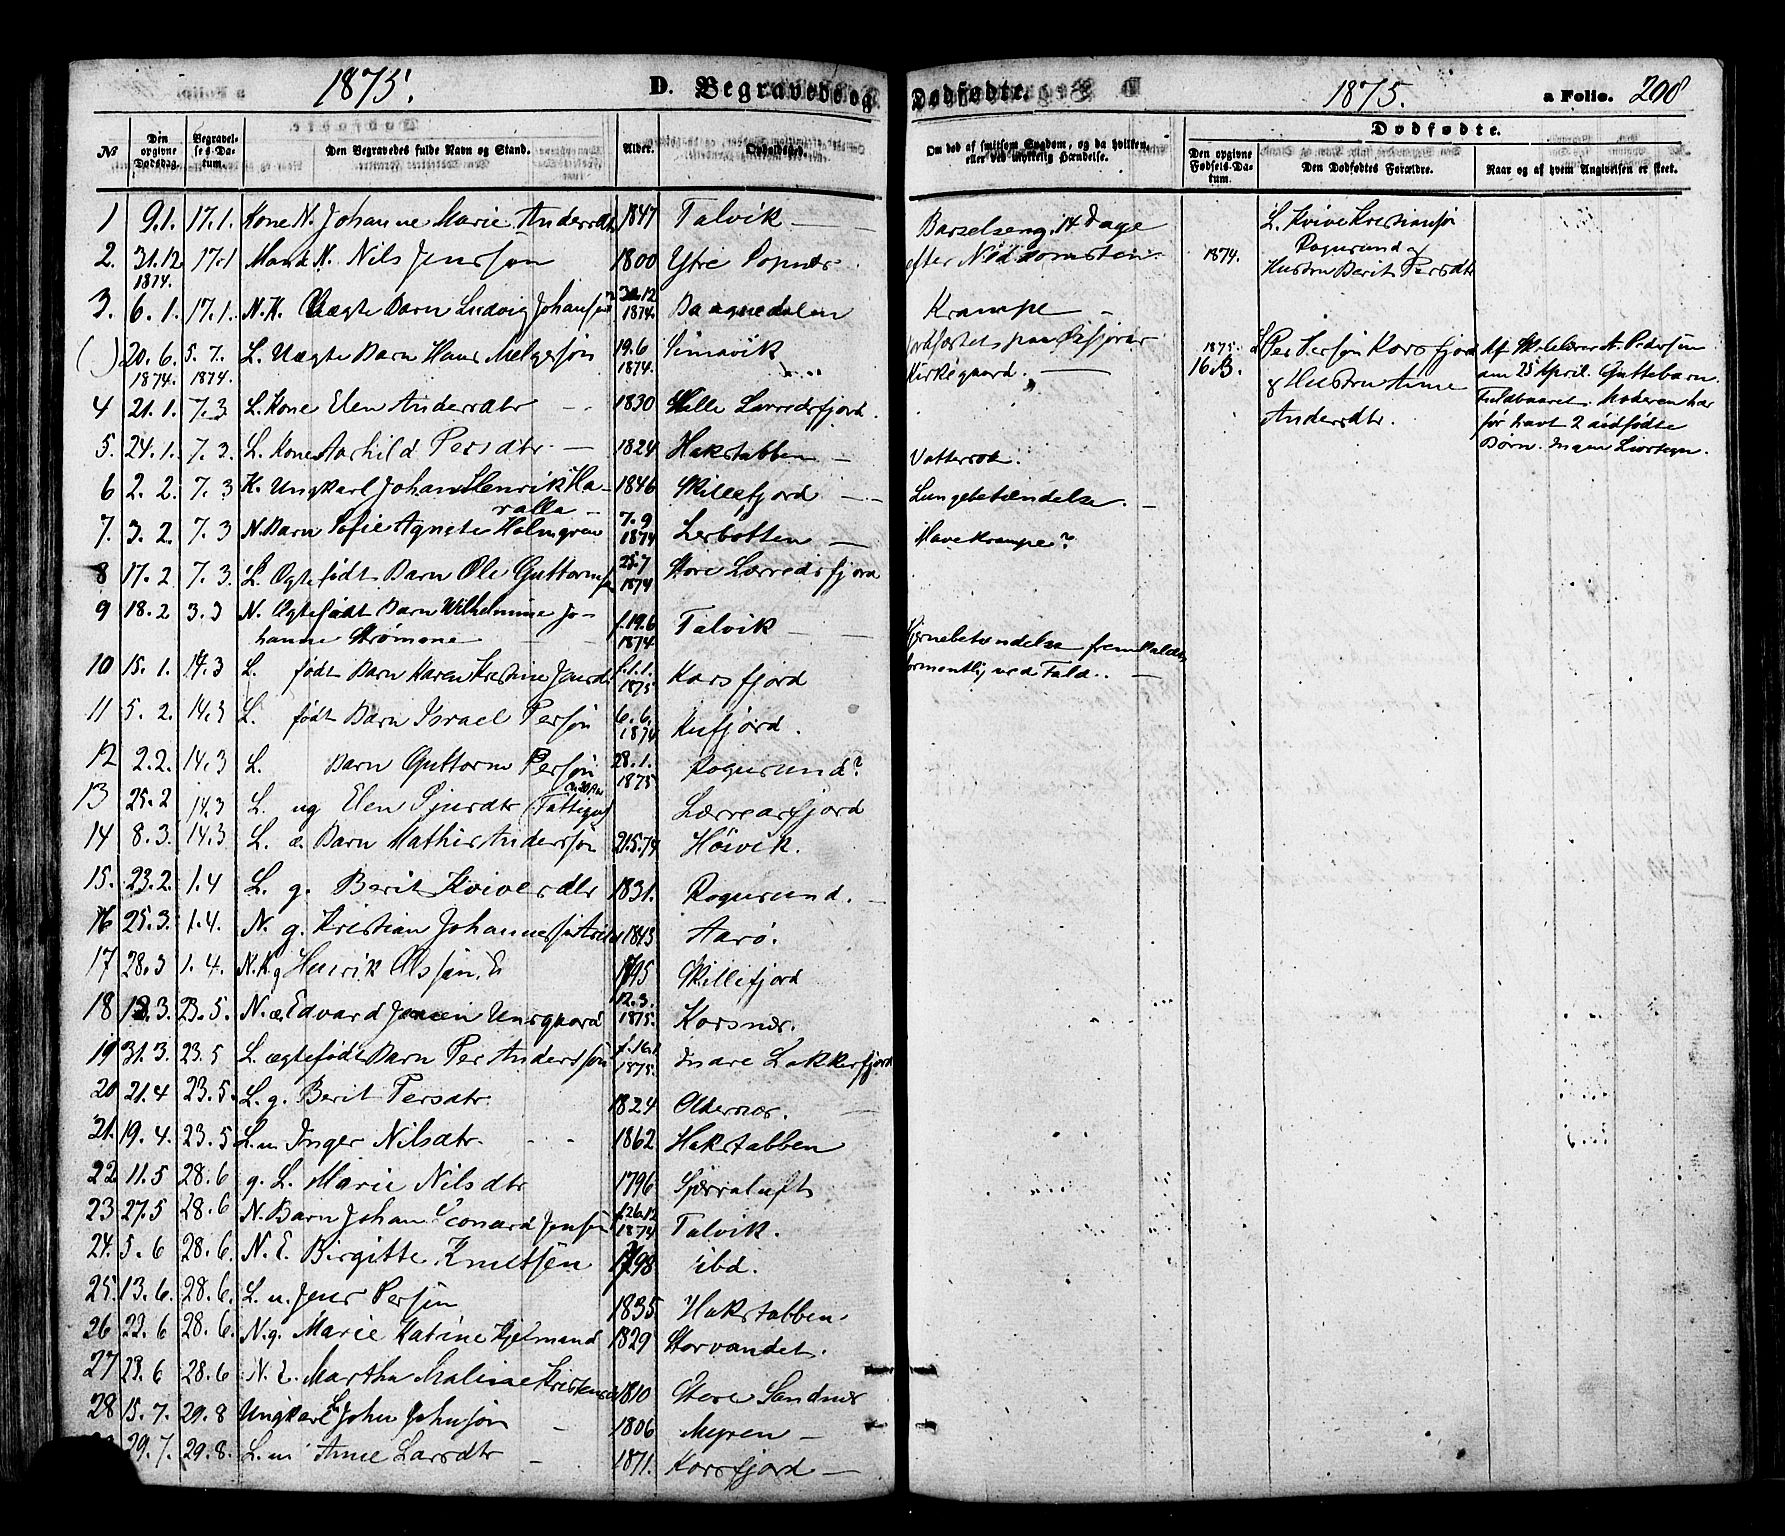 1875. D. Begravede og Dødfødte. 1875. a Folio. 208
Dødfødte.
№ Den opgivne Dødsdag. Begravelses-Datum. Den Begravedes fulde Navn og Stand. Alder. Opholdssted. Om død af smitsom Sygdom, og da hvilken, eller ved ulykkelig Hændelse. Den opgivne Fødsels-Datum. Den Dødfødtes Forældre. Naar og af hvem Angivelsen er skeet.
1 9.1. 17.1. Kone N. Johanne Marie Andersdtr 1847 Talvik — Barselseng, 14 Dage
2. 31.12 1874. 17.1 Mand K. Nils Jensøn 1800 Ytre efter
3. 6.1. 17.1. N.K. Uægte Barn Ludvig Johansen 30.12 1874. Krampe
( ) 20.6. 1874. 5.7. 1874. L. Uægte Barn Hans 19.6 1874. Simavik Kirkegaard.
4 21.1. 7.3 L. Kone Elen Andersdtr 1830 Lille Lerredsfjord.
5. 24.1. 7.3. L. Kone Persdtr. 1824 Hakstabben Vattersot.
6 2.2. 7.3 K. Ungkarl Johan Henrik Ha-
ralla 1846 Skillefjord Lungebetændelse.
7. 3.2. 7.3 N. Barn Sofie Agnete Holmgren 7.9 1874 Lerbotten Mavekrampe?
8 17.2 7.3. L. Ogtefødt Barn Ole Guttormsøn 25.7 1874 Store Lerredsfjord
9 18.2 3.3 N. Ogtefødt Barn Wilhelmine Jo-
hanne Strømene f.19.6 1874 Talvik Hjernebetændelse
formentlig ved Fald.
10 15.1. 14.3 L. født Barn Karen Kristine f.1.1. 1875 Korsfjord
11 5.2. 14.3 L. født Barn Israel Persøn 6.6. 1874 Kufjord.
12 2.2. 14.3 L. Barn Guttorm Persøn 28.1. 1875 Rognsund?
13 25.2 14.3 L. ug Elen Sjursdtr (Fattig)
14 8.3. 14.3 L. æ. Barn Mathis Andersøn 21.5.74 Høivik.
15. 23.2. 1.4 L. g. Berit Kvivesdtr 1831. Rognsund.
16 25.3. 1.4. N. g. Kristian Johannes 1843 Aarø.
17 28.3 1.4. N.K. g Henrik Olssøn. E 1795 Skillefjord
18 3. 23.5. N. æ. Edvard Jensen 12.3. 1875. Korsnæs.
19 31.3. 23.5 L. ægtefødt Barn Per Anderssøn 1875. Indre Lakkerfjord
20 21.4 23.5. L. g. Berit Persdtr. 1824 Oldernæs.
21. 19.4. 23.5 L. u Inger Nilsdtr. 1862 Hakstabben
22 11.5 28.6 g. L. Marie Nilsdtr 1796
23 27.5 28.6 N. Barn Johan Leonard Jensen f.26.12 1874 Talvik.
24. 5.6 28.6. N. E. Birgitte Knutsen 1798 ibd.
25. 13.6. 28.6. L. u. Jens Persøn 1835 Hakstabben.
26 22.6 28.6. N.g. Marie Katrine Hjelmand 1829 Storvandet.
27 23.6 28.6 N. E. Martha Malene Kristensen 1810 Store Sandnes
28 15.7. 29.8 Ungkarl L John Johnsøn 1806 Myren
29.7. 29.8. L. u Anne Larsdtr 1871. Korsfjord
1874. L. Kvive Kristiansøn
Rognsund og
Hustru Berit Persdtr
1875 16/3. L Per Persøn Korsfjord
& Hustru Anne
Andersdtr.
Af Skolelærer A. Pedersen
am 25 April. Guttebarn.
Fuldbaaret. Moderen har
før havt 2 dødfødte
Børn. Ingen Livstegn.